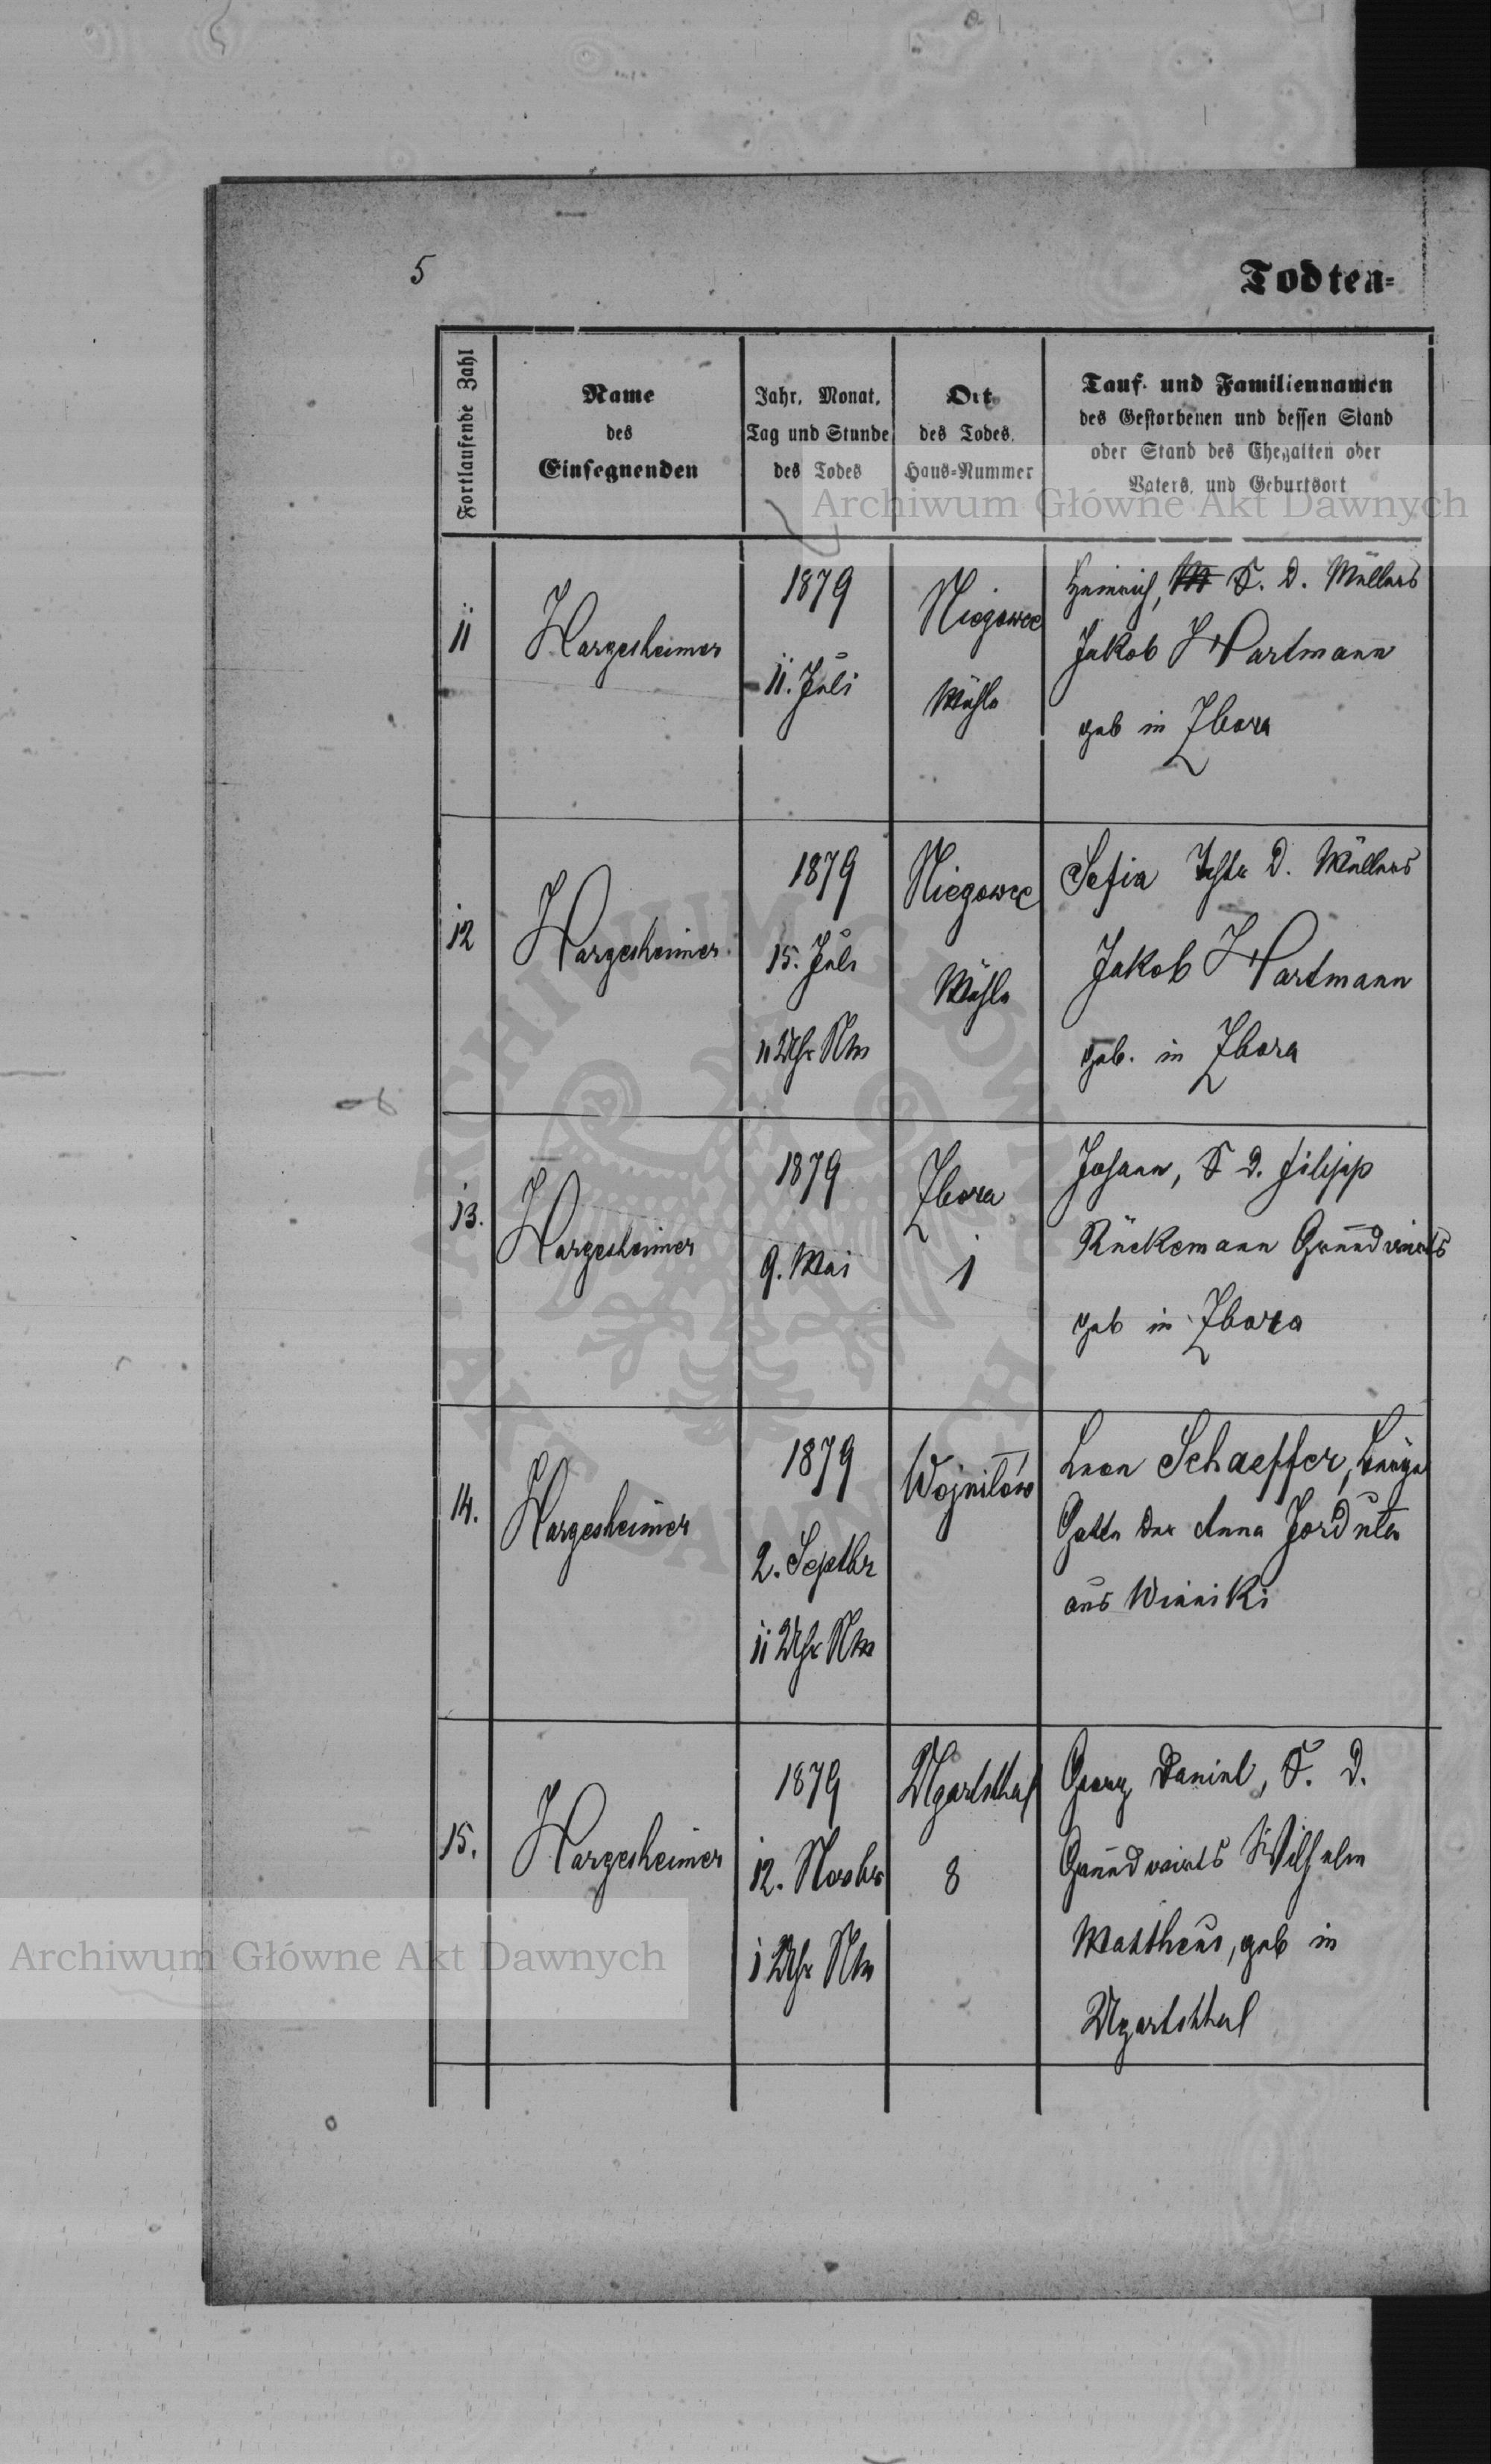 5
Todten=
Fortlaufende Zahl
Name
des
Einsegnenden
Jahr, Monat,
Tag und Stunde
des Todes
Ort
des Todes,
Haus=Nummer
Tauf- und Familiennamen
des Gestorbenen und dessen Stand
oder Stand des Ehegatten oder
Vaters, und Geburtsort
Archiwum Główne Akt Dawnych
11
Hargesheimer
1879
11. Juli
Niegowce
Mühle
Heinrich, S. D. Müllers
Jakob Hartmann
geb in Zbora
12
Hargesheimer
1879
15. Juli
11 Uhr Nm
Niegowce
Mühle
Sofia Tchtr D. Müllers
Jakob Hartmann
geb. in Zbora
13.
Hargesheimer
1879
9. Mai
Zbora
1
Johann, S D. Filipp
Rückemann Grundwirts
geb in Zbora
14.
Hargesheimer
1879
2. Septbr
11 Uhr Nm
Wojnilów
Leon Schaeffer,
Gatte der Anna
aus Winniki
15.
Hargesheimer
1879
12. Novbr
1 Uhr Nm
Ugartsthal
8
Georg Daniel, S. D.
Grundwirts Wilhelm
Mattheus, geb in
Ugartsthal
Archiwum Główne Akt Dawnych
ARCHIWUM GŁÓWNE AKT DAWNYCH